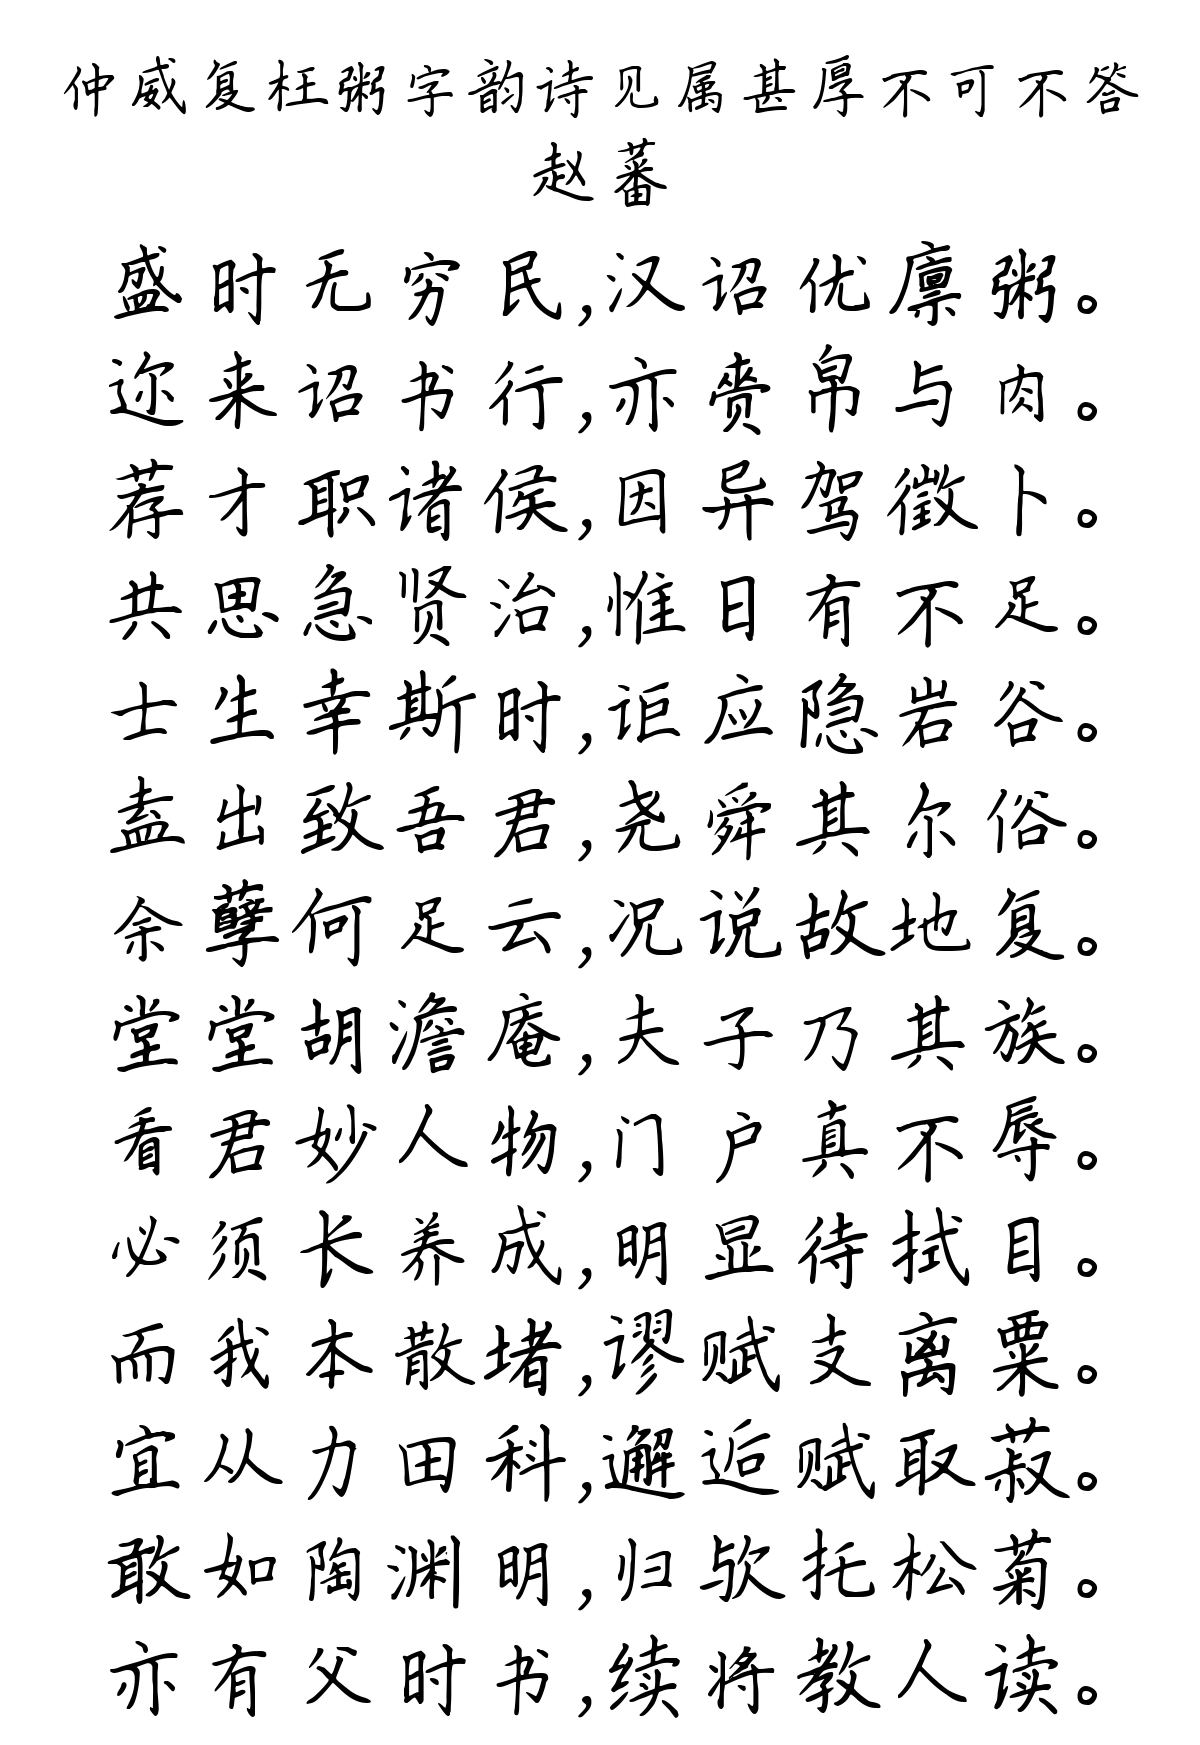 仲威复枉粥字韵诗见属甚厚不可不答
赵蕃
盛时无穷民,汉诏优廪粥。
迩来诏书行,亦赉帛与肉。
荐才职诸侯,因异驾徵卜。
共思急贤治,惟日有不足。
士生幸斯时,讵应隐岩谷。
盍出致吾君,尧舜其尔俗。
余孽何足云,况说故地复。
堂堂胡澹庵,夫子乃其族。
看君妙人物,门户真不辱。
必须长养成,明显待拭目。
而我本散堵,谬赋支离粟。
宜从力田科,邂逅赋取菽。
敢如陶渊明,归欤托松菊。
亦有父时书,续将教人读。